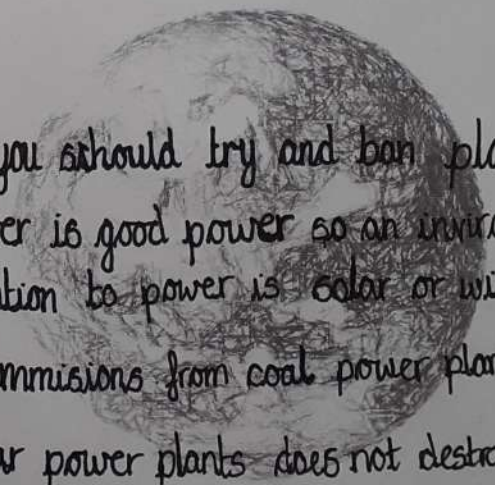 you sthould try and ban pla
er is good power so an inviro
tion to power is solar or wi
mmisions from coal power plan
ar power plants does not destro